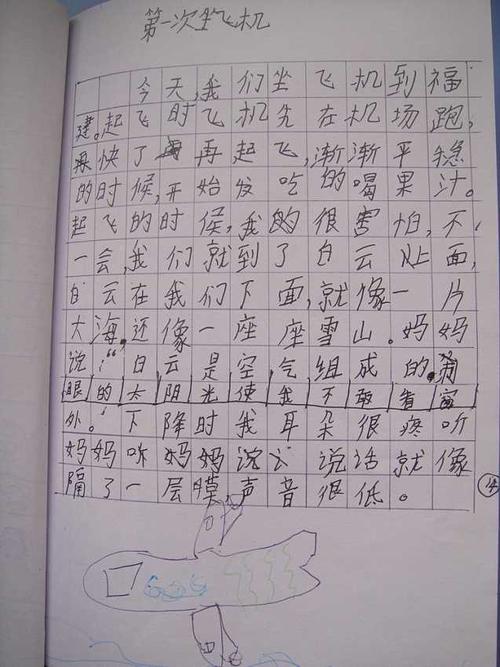 第一次坐飞机
今天,我们坐飞机到福
建。起飞时飞机先在机场跑,
快了再起飞,渐渐平稳
的时候,开始发吃的喝果汁。
起飞的时侯,我的很害怕,不
一会,我们就到了白云上面,
白云在我们下面,就像一片
大海,还像一座座雪山。妈妈
说:“白云是空气组成的。刺
眼的太阴光使我不敢看窗
外。”下降时我耳朵很疼听
妈妈听妈妈说话说话就像
隔了一层膜,声音很低。